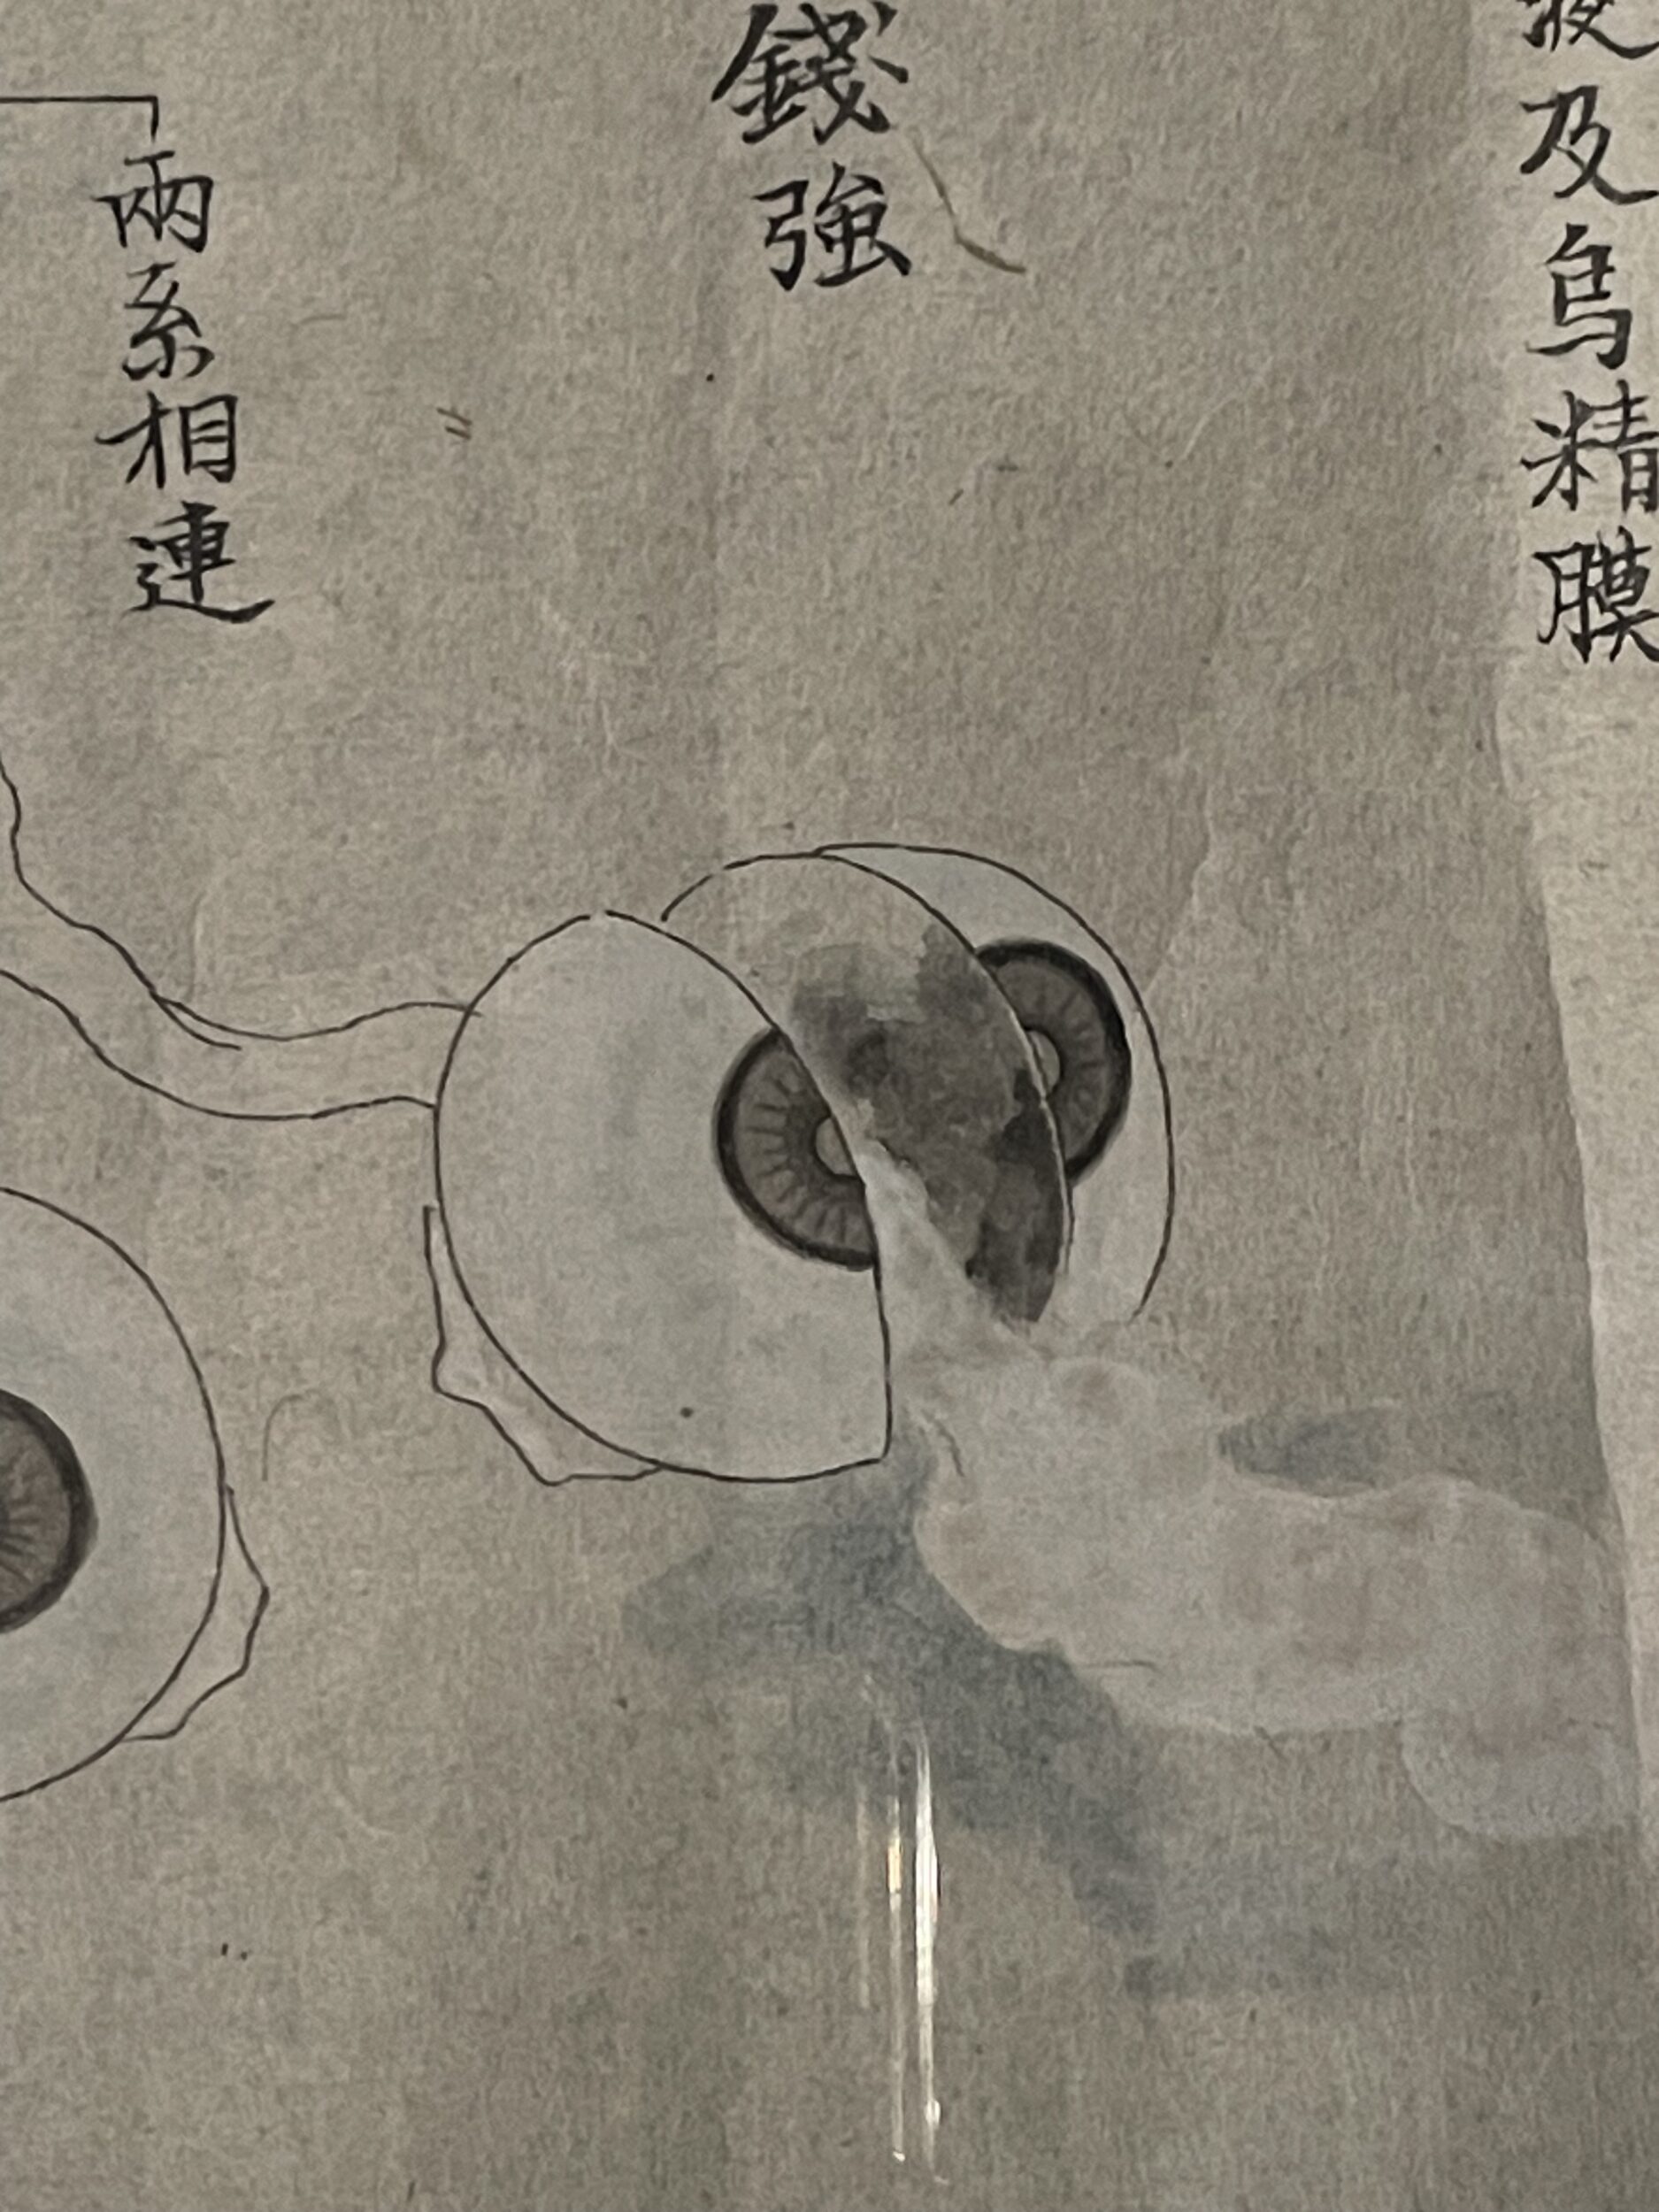 液及烏精膜
錢強
兩系相連